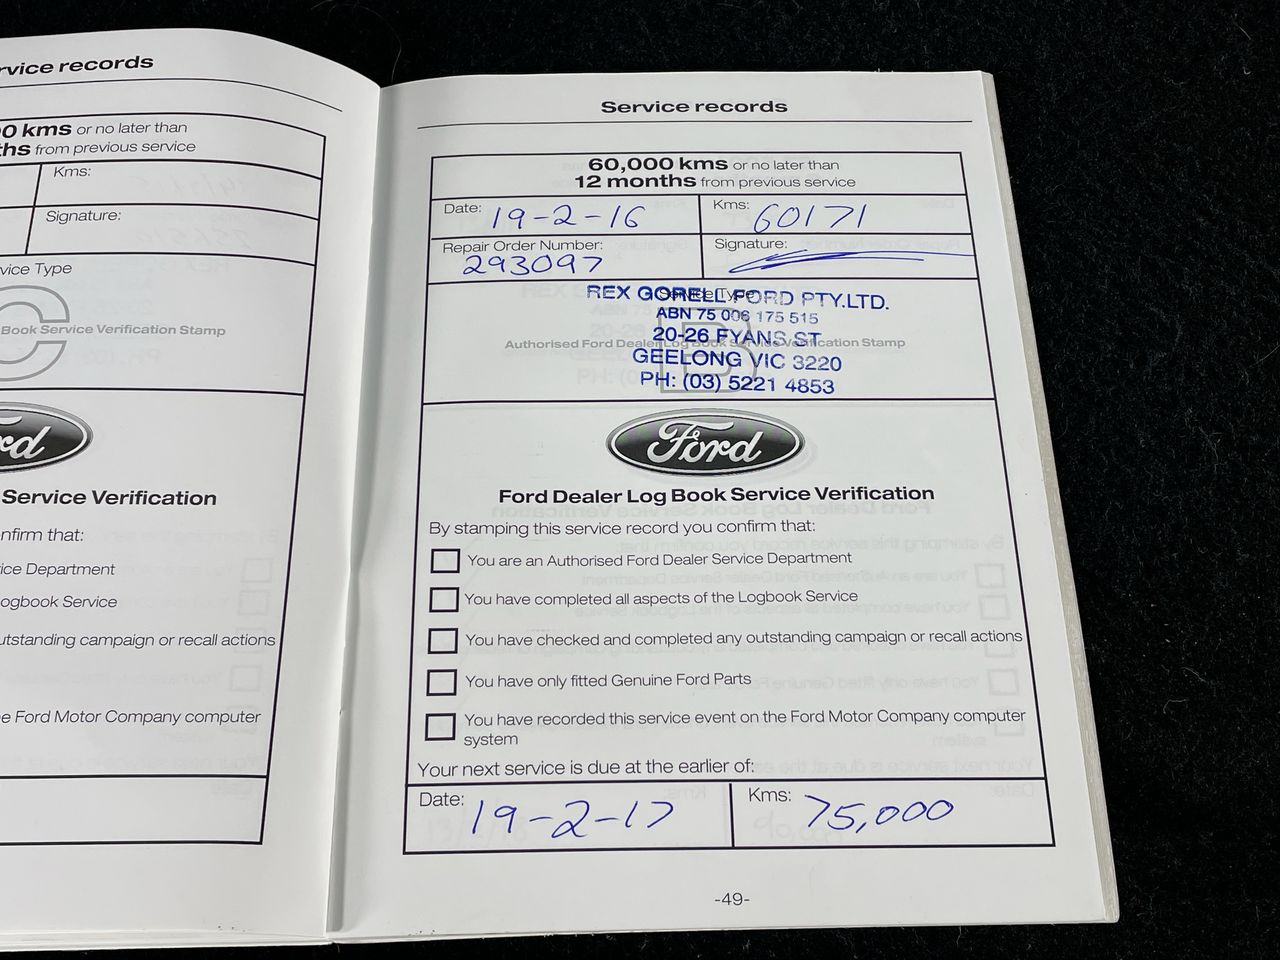 rvice records
00 kms or no later than
ths from previous service
Kms:
Signature:
vice Type
C
Book Service Verification Stamp
rd
Service Verification
nfirm that:
ice Department
ogbook Service
utstanding campaign or recall actions
e Ford Motor Company computer
Service records
60,000 kms or no later than
12 months from previous service
Date: 19-2-16
Kms: 60171
Repair Order Number: 293097
Signature:
Service Type
B
REX GORELL FORD PTY.LTD.
ABN 75 006 175 515
20-26 FYANS ST
Authorised Ford Dealer Log Book Service Verification Stamp
GEELONG VIC 3220
PH: (03) 5221 4853
Ford
Ford Dealer Log Book Service Verification
By stamping this service record you confirm that:
You are an Authorised Ford Dealer Service Department
You have completed all aspects of the Logbook Service
You have checked and completed any outstanding campaign or recall actions
You have only fitted Genuine Ford Parts
You have recorded this service event on the Ford Motor Company computer
system
Your next service is due at the earlier of:
Date: 19-2-17
Kms: 75,000
-49-